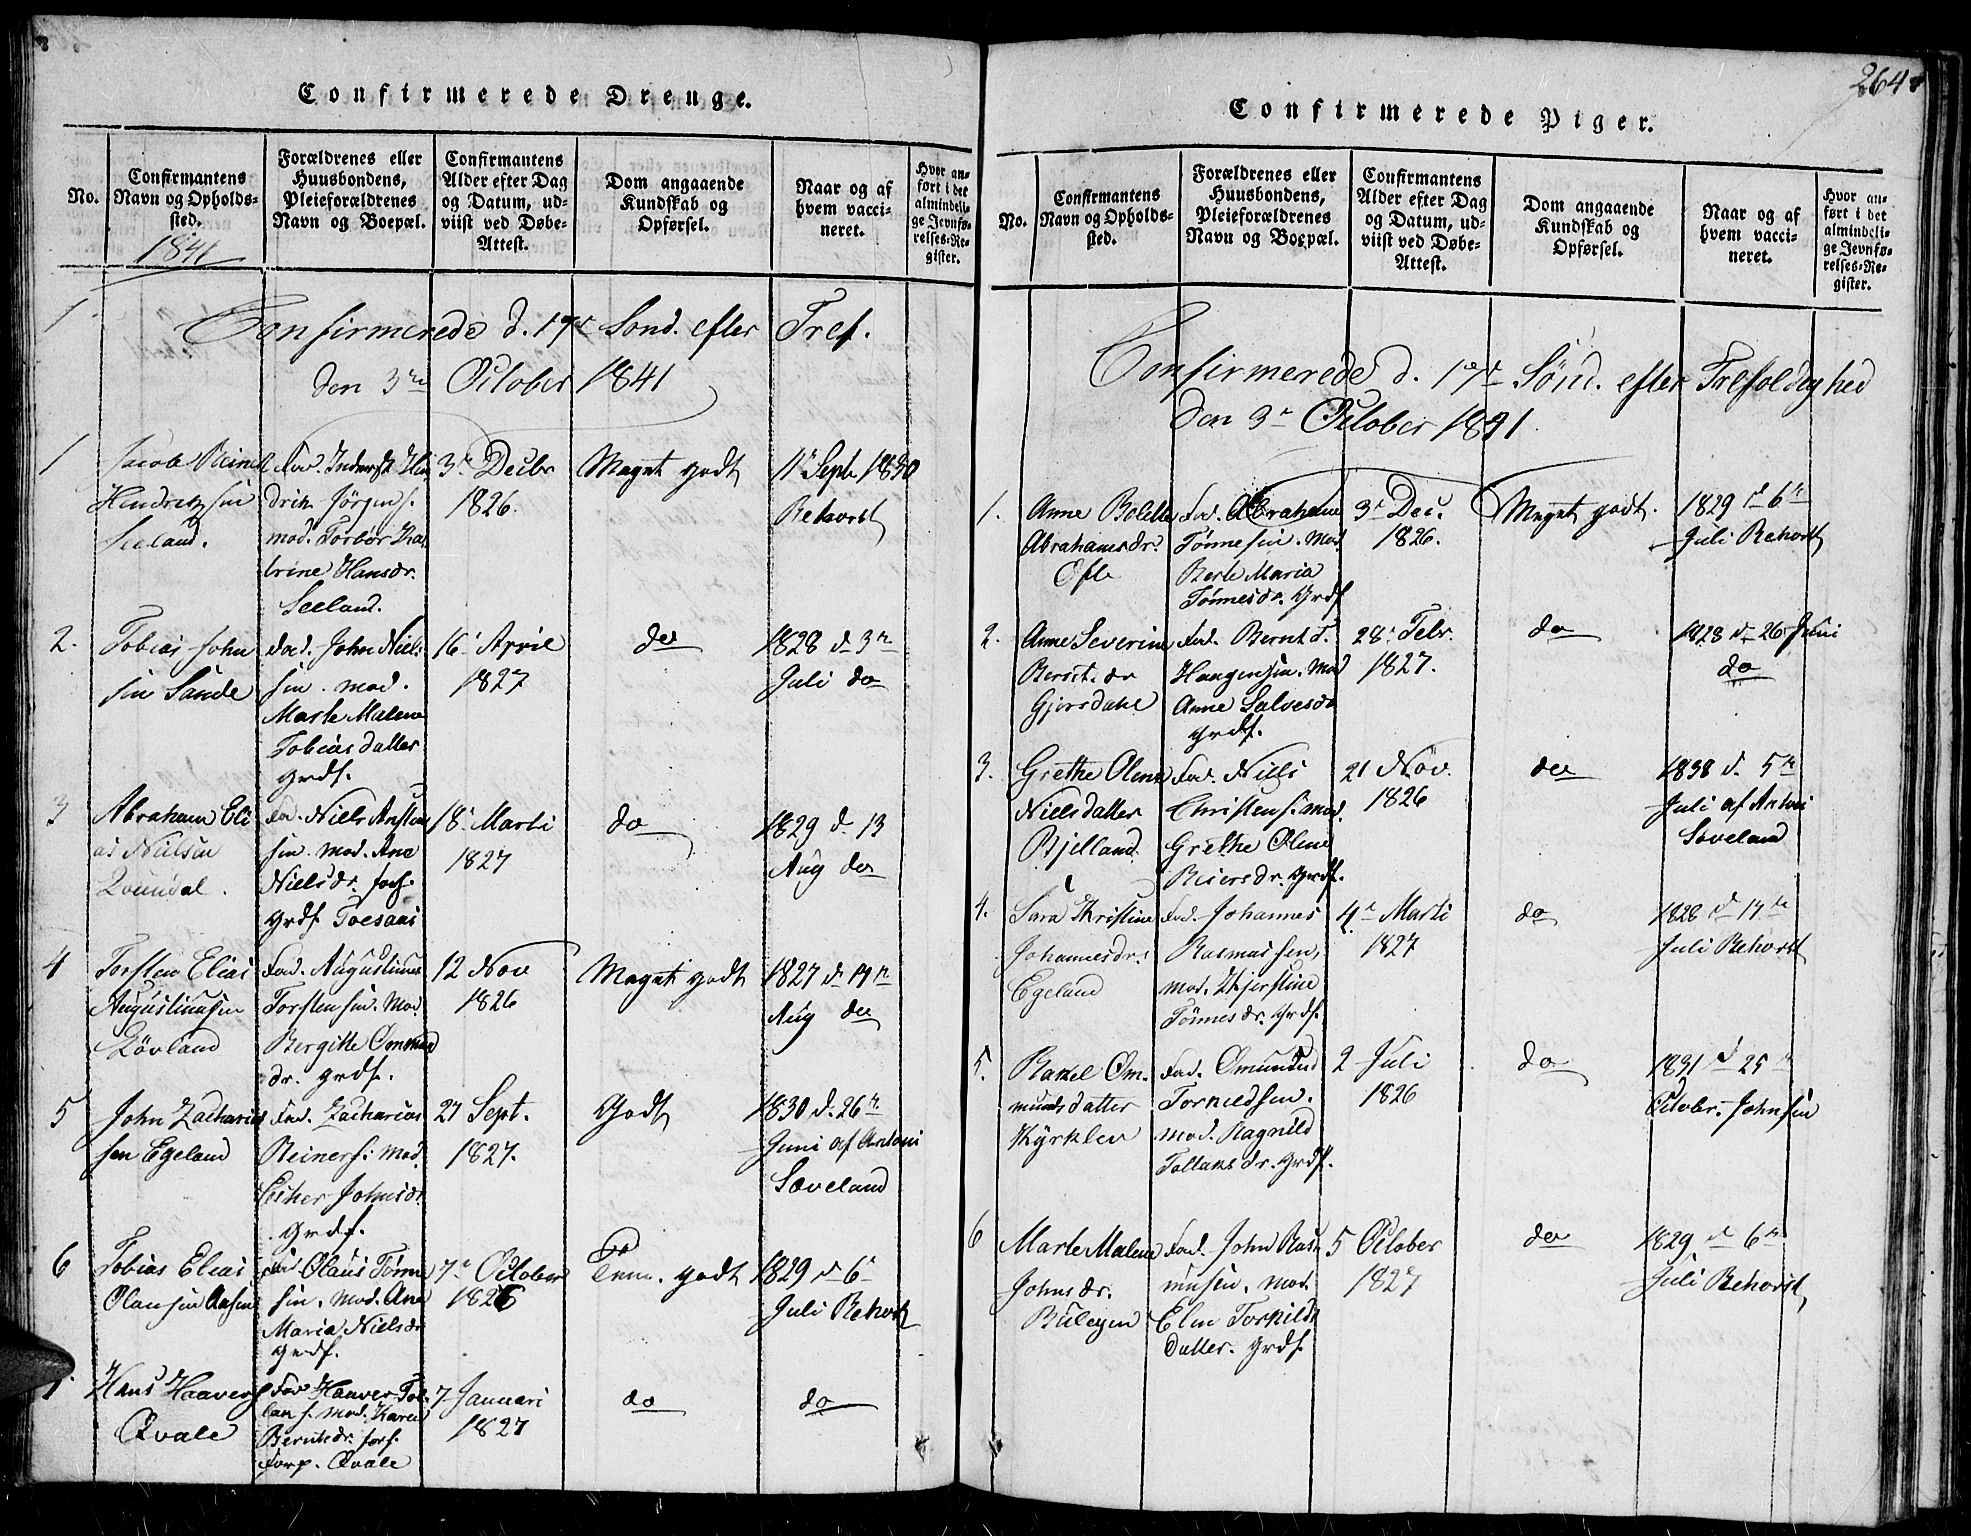 Confirmerede Drenge.
No.
Confirmantens
Navn og Opholds-
sted.
1841
Forældrenes eller
Huusbondens,
Pleieforældrenes
Navn og Boepæl.
Confirmantens
Alder efter Dag
og Datum, ud-
viist ved Døbe-
Attest.
Dom angaaende
Kundskab og
Opførsel.
Naar og af
hvem vacci-
neret.
Hvor an-
ført i det
almindeli-
ge Jevnfø-
relses-Re-
gister.
Confirmerede d. 17de Sønd. efter Tref.
den 3die October 1841
1
Jacob Reinert
Hendriksen
Seeland.
Fad. Inderst Hen
drik Jørgens.
mod. Torbør Ka
trine Hansdr.
Seeland.
3die Decbr
1826.
Meget godt
11te Septb 1830
Rehorst
2.
Tobias John
sen Sande
Fad. John Niel
sen. mod.
Marte Malene
Tobias datter
grdf.
16 April
1827
do
1828 d 3die
Juli do
3
Abraham Eli
as Nielsen
Qvindal.
Fad. Niels Ansten
sen. mod. Ane
Nielsdr. forf.
grdf. Toesaas
18 Marti
1827
do
1829 d. 13
Aug do
4
Torsten Elias
Augustinusen
Rövland
Fad. Augustinus
Torstensen. Mod.
Bergitte Ommund
dr. grdf.
12 Nov
1826
Meget godt
1827 d 14de
Aug do
5
John Zacharias
sen Egeland
Fad. Zacharias
Reiners. mod.
Esther Johnsdr.
grdf.
27 Sept.
1827.
Godt
1830 d. 26de
Juni af Antoni
Soveland
6
Tobias Elias
Olausen Aasen
Fad Olaus Tønne
sen. mod. Ane
Maria Nielsdr
grdf.
7de October
1826
Tem. godt
1829 d 6te
Juli Rehorst
7.
Hans Haavers
Qvale
Fad Haaver Tol
lans. mod. Karen
Berntsdr. forf.
Forp. Qvale
7 Januari
1827
do
do
264
Confirmerede Piger.
No.
Confirmantens
Navn og Opholds-
sted.
Forældrenes eller
Huusbondens,
Pleieforældrenes
Navn og Boepæl.
Confirmantens
Alder efter Dag
og Datum, ud-
viist ved Døbe-
Attest.
Dom angaaende
Kundskab og
Opførsel.
Naar og af
hvem vacci-
neret.
Hvor an-
ført i det
almindeli-
ge Jevnfø-
relses-Re-
gister.
Confirmerede d. 17de Sønd. efter Trefoldighed
den 3die October 1841
1.
Anne Bolette
Abrahamsdr.
Ofte
Fad. Abraham
Tønnesen. mod.
Berte Maria
Tønnesdr. grdf
3die Dec.
1826.
Meget godt.
1829 d 6te
Juli Rehorst
2.
Anne Severine
Bernt. dr
Gjersdahl
Fad. Bernt T.
Haugensen. Mod
Anne Salvesdr
grdf.
28 Febr.
1827.
do
1828 d 26 Juni
do
3.
Grethe Oline
Nielsdatter
Bjelland
Fad. Niels
Christens. mod.
Grethe Oline
Reiersdr. grdf.
21 Nov.
1826
do
1838 d. 5te
Juli af Antoni
Soveland
4.
Sara Kristine
Johannesdr.
Egeland
Fad. Johannes
Rasmussen,
mod. Kjerstine
Tønnesdr. grdf.
4de Marti
1827
do
1828 d 14de
Juli Rehorst
5.
Rakel Om-
mundsdatter
Kyrklev
Fad. Omund
Torkildsen.
mod. Ragnild
Tollaksdr. grdf.
2 Juli
1826
do
1831 d 25de
Octobr. Johnsen
6
Marte Malene
Johnsdr.
Bulegen
Fad. John Ras
musen. mod.
Elen Torkilds
datter. grdf.
5 October
1827
do
1829 d 6te
Juli Rehorst